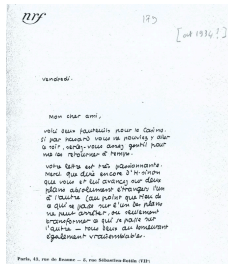 nrf
179
[oct 1934 ?]
vendredi.
Mon cher ami,
voici deux fauteuils pour le Casino.
Si par hasard vous ne pouviez y aller
ce soir, seriez-vous assez gentil pour
me les retourner à temps.
votre lettre est très passionnante.
Merci. Que dire encore d'H. sinon
que vous et lui avancez sur deux
plans absolument étrangers l'un
à l'autre (au point que rien de
ce qui se passe sur l'un des plans
ne peut arrêter, ou seulement
transformer ce qui se passe sur
l'autre — tous deux au demeurant
également vraisemblables.
Paris, 43, rue de Beaune — 5, rue Sébastien-Bottin (VIIe)